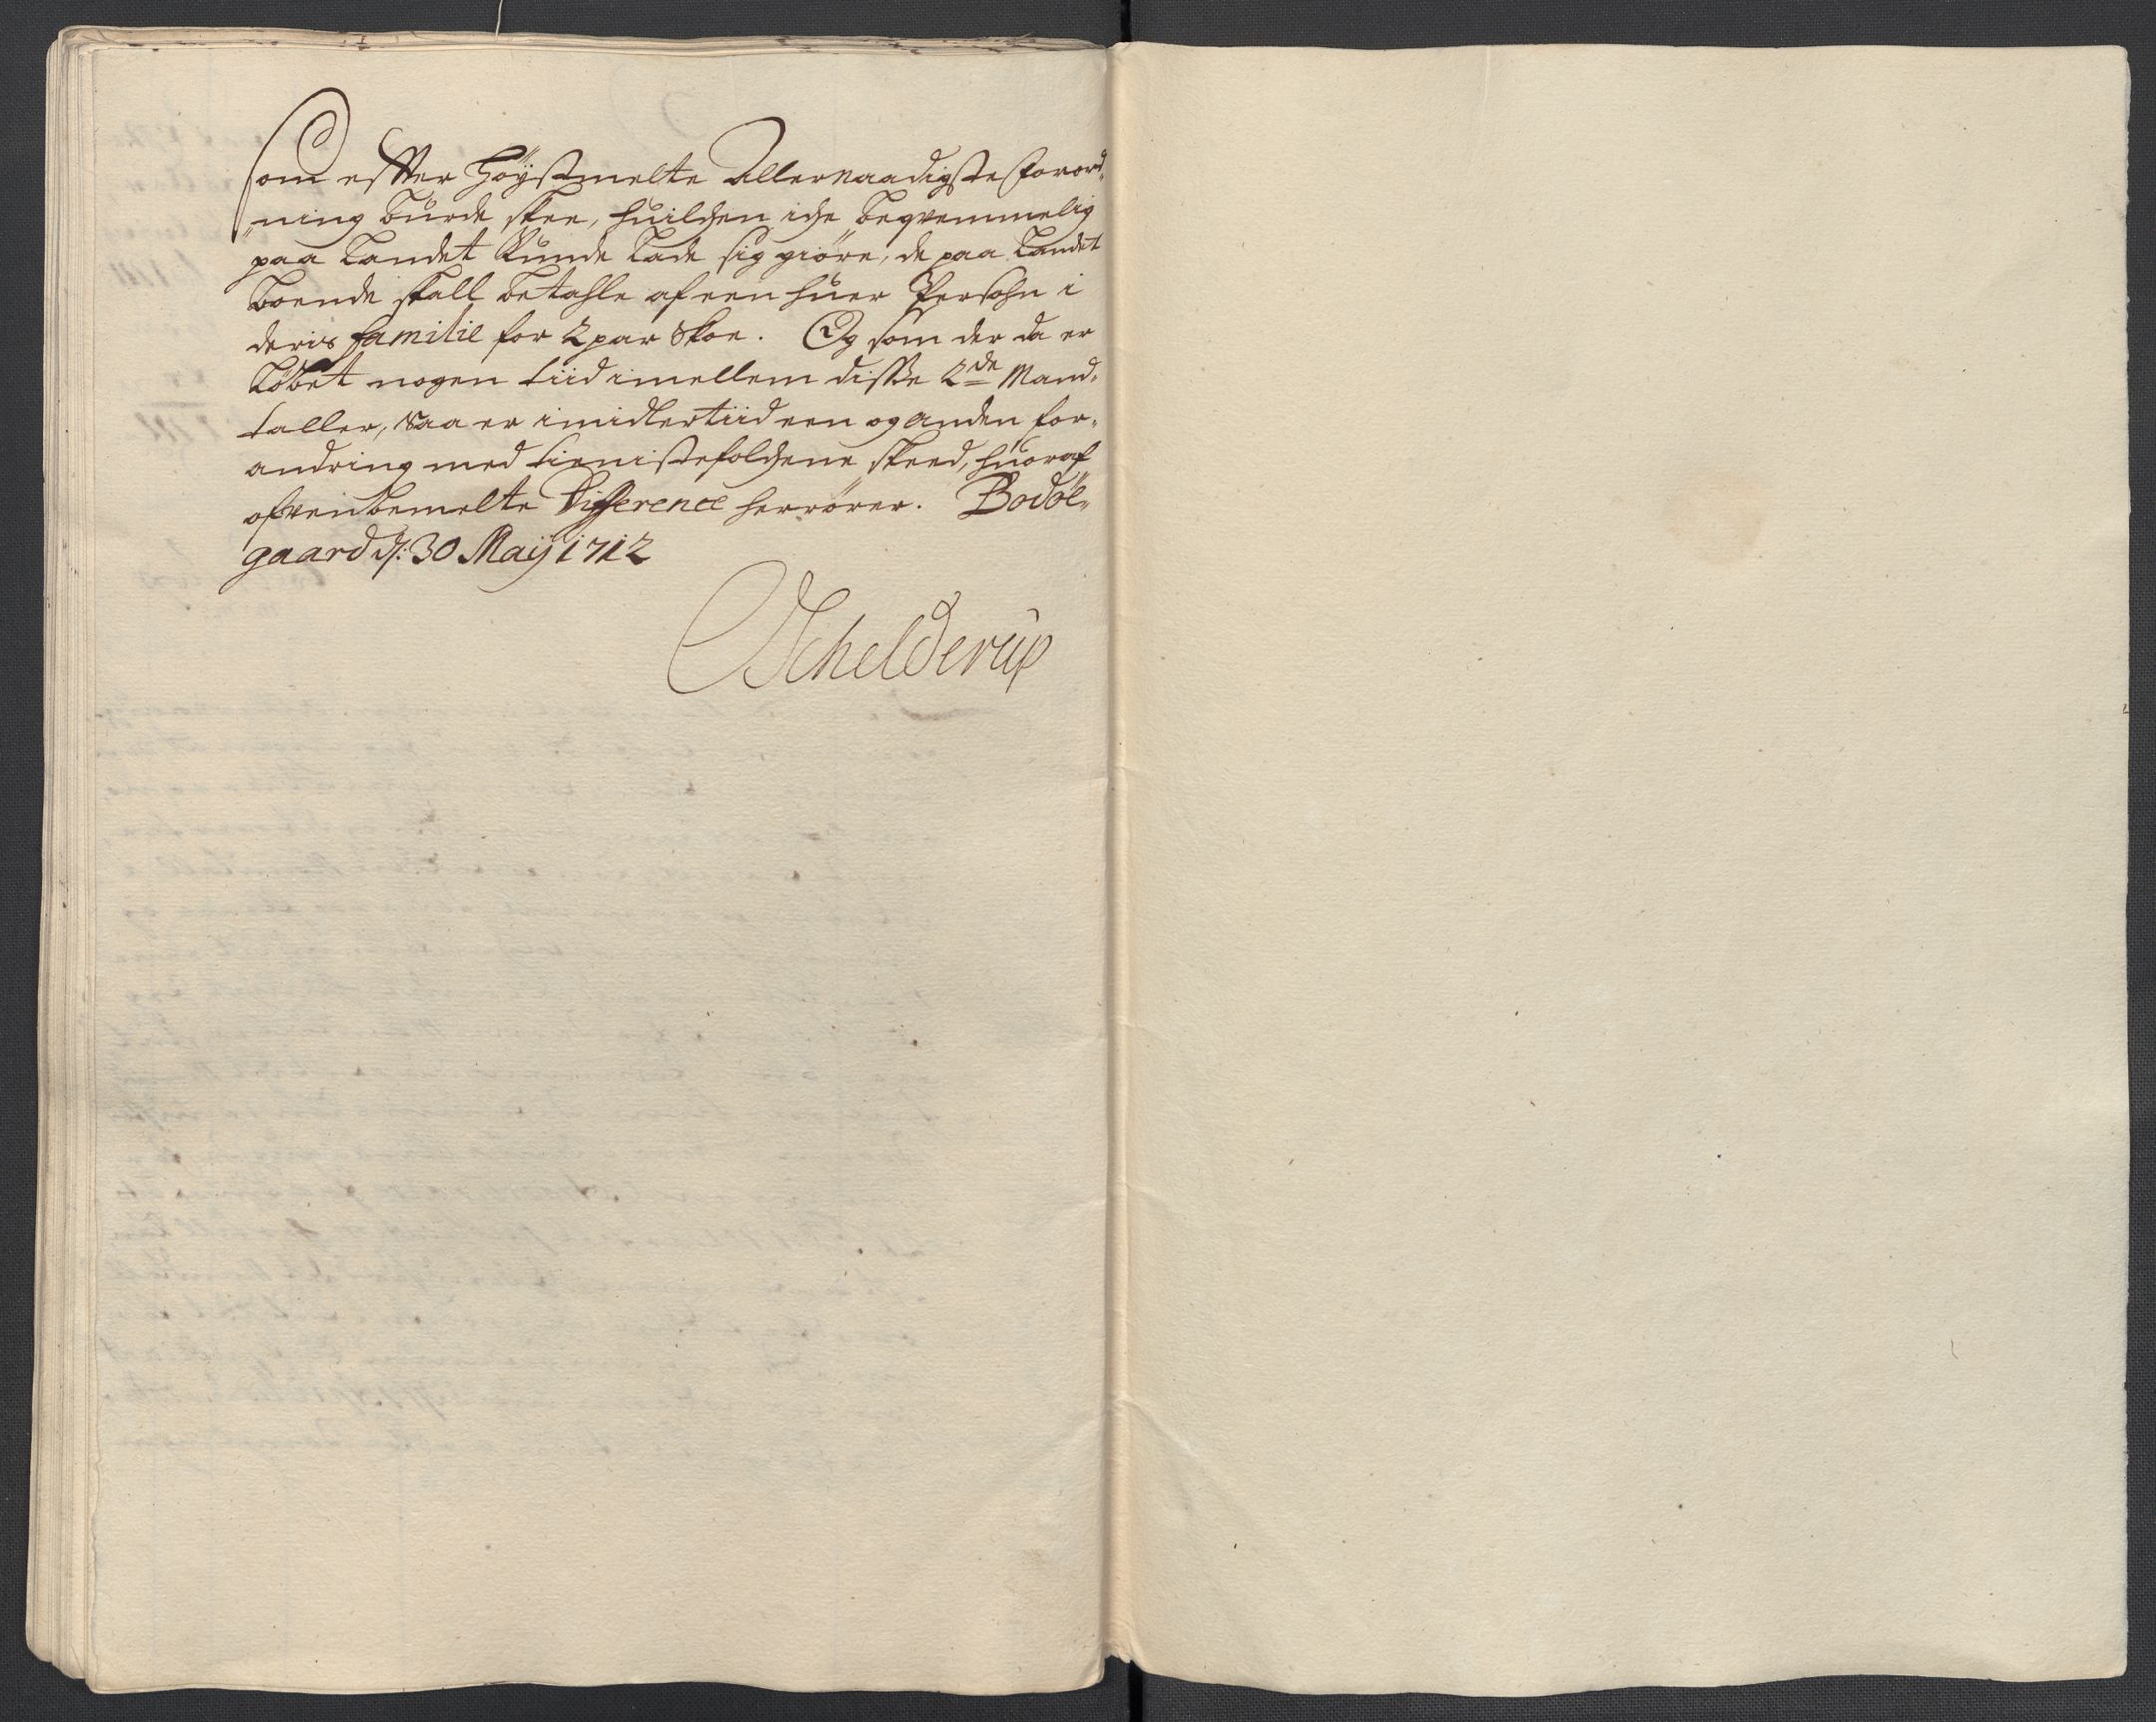 Som effter Høÿstmelte Allernaadigste forord¸
„ning burde skee, huilchen iche beqvemmelig
paa Landet kunde lade sig giöre, de paa Landet
boende skall betahle af een huer Persohn i
deris familie for 2 par Skoe. Og som der da er
Löbet nogen tiid imellem disse 2de Mand¸
taller, saa er imidlertiid een og anden for¸
andring med tienistefolchene skeed, huoraf
ofvenbemelte Difference herrører. Bodøe¸
gaard d: 30 Maÿ 1712
Schelderup